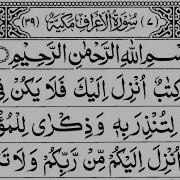 (٧) سُوْرَةُ الْاَعْرَافِ مَكِّيَّةٌ (٣٩)
بِسْمِ اللّٰهِ الرَّحْمٰنِ الرَّحِيْمِ
كِتٰبٌ اُنْزِلَ اِلَيْكَ فَلَا يَكُنْ فِيْ
لِتُنْذِرَ بِهٖ وَذِكْرٰى
اُنْزِلَ اِلَيْكُمْ مِّنْ رَّبِّكُمْ وَلَا